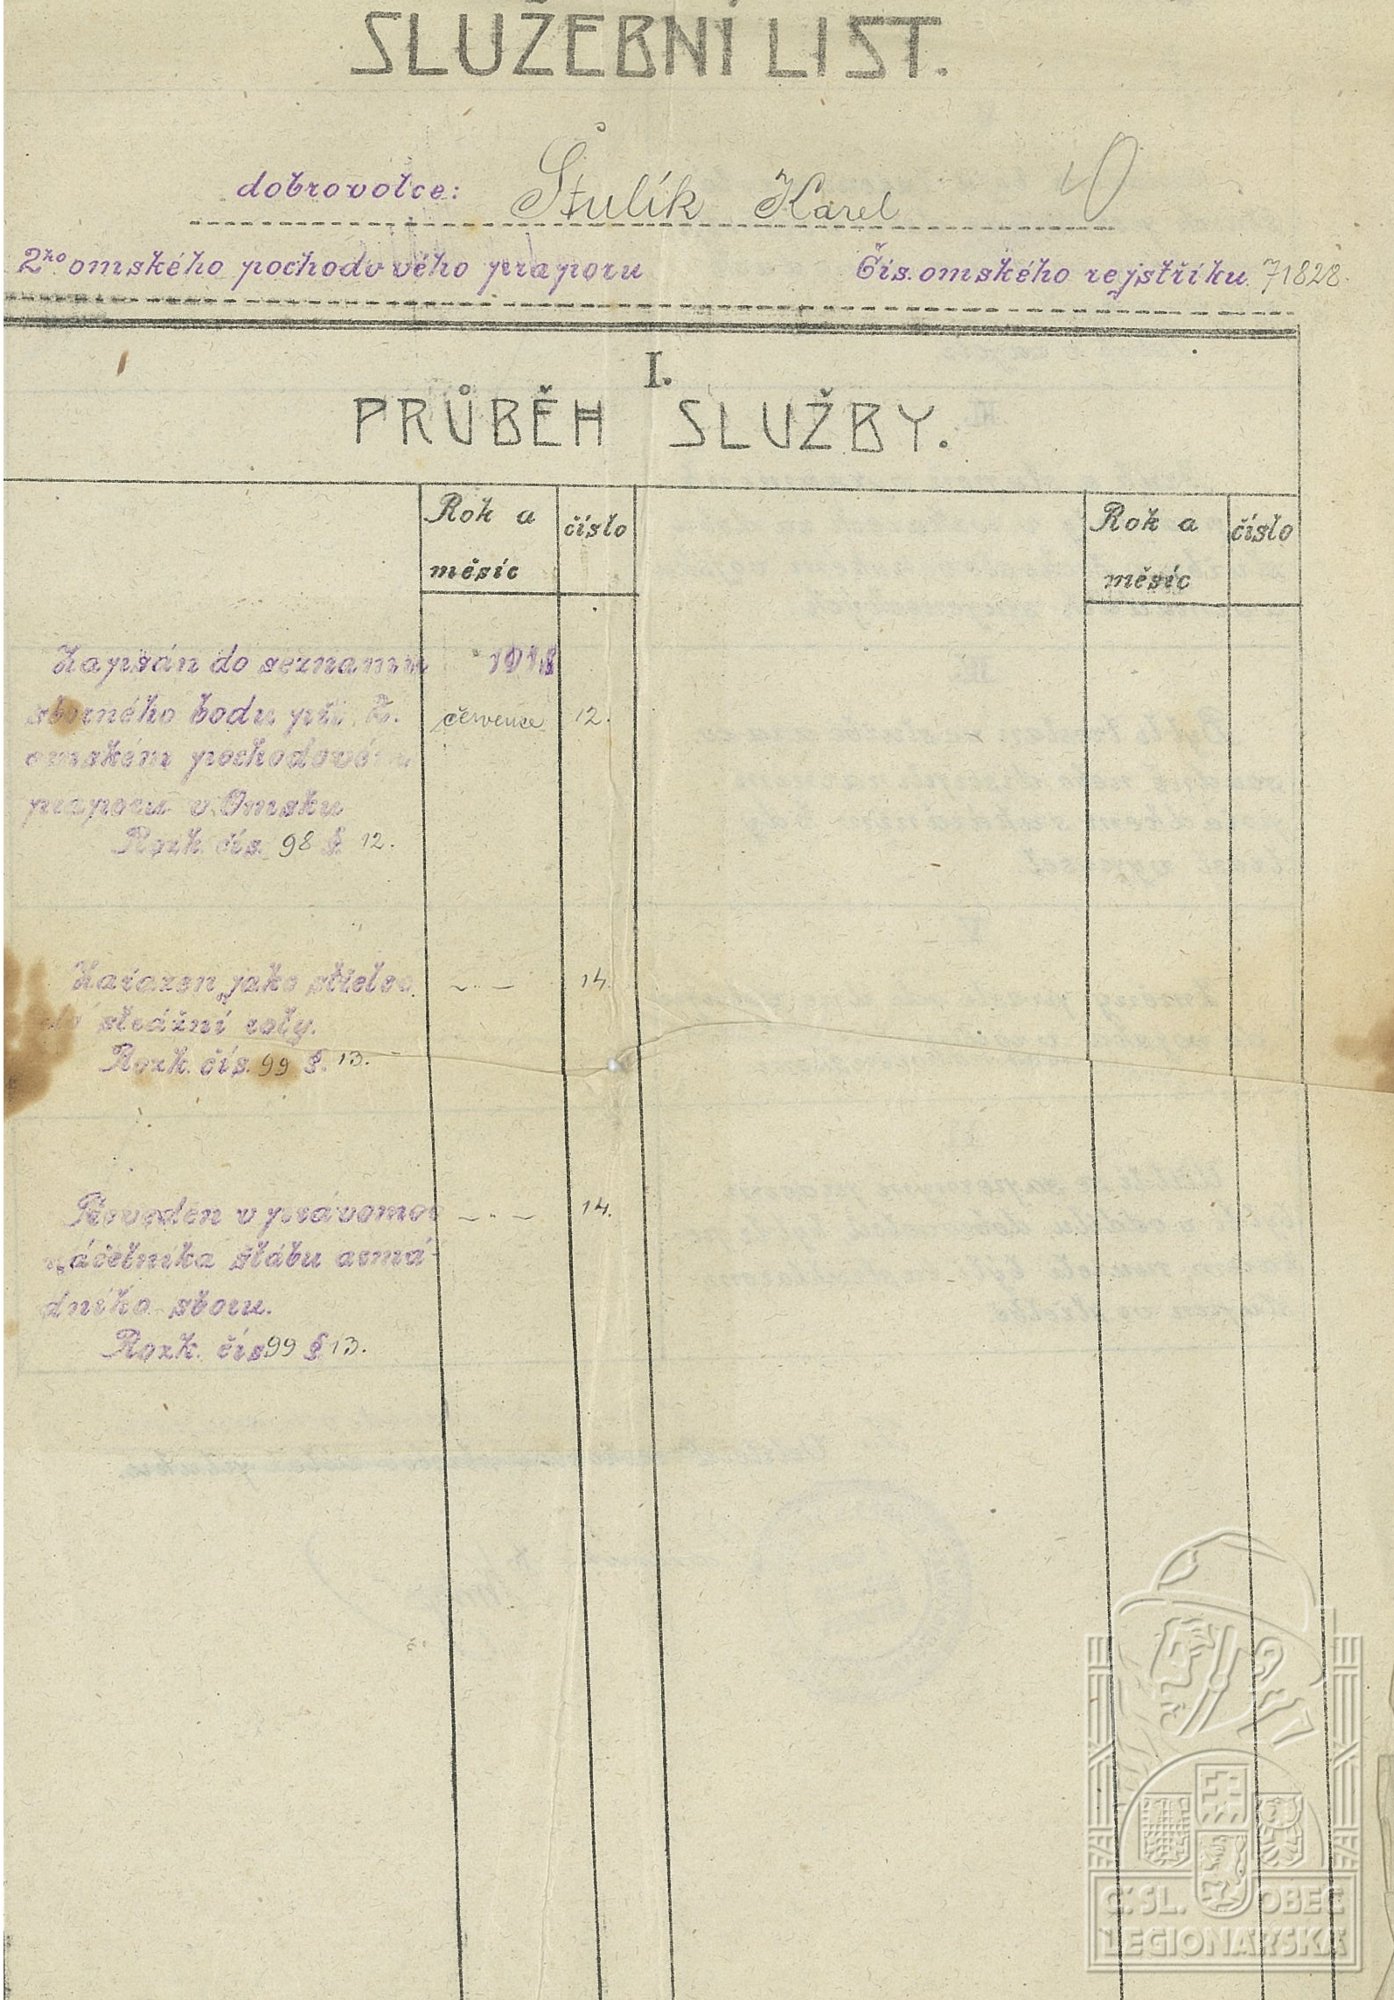 SLUŽEBNÍ LIST.
dobrovolce: Štulík Karel
2ho omského pochodového praporu Čís. omského rejstříku 71828.
I.
PRŮBĚH SLUŽBY.
Rok a měsíc číslo Rok a měsíc číslo
Zapsán do seznamu 1918
sborného bodu při 2. července 12.
omském pochodovém
praporu v Omsku
Rozk. čís. 98 § 12.
Zařazen jako střelec -"- 14.
do strážní roty.
Rozk. čís. 99 § 13.
Převeden v právomoc -"- 14.
náčelníka štábu armá-
dního sboru.
Rozk. čís 99 § 13.
Č. SL. OBEC
LEGIONÁŘSKÁ